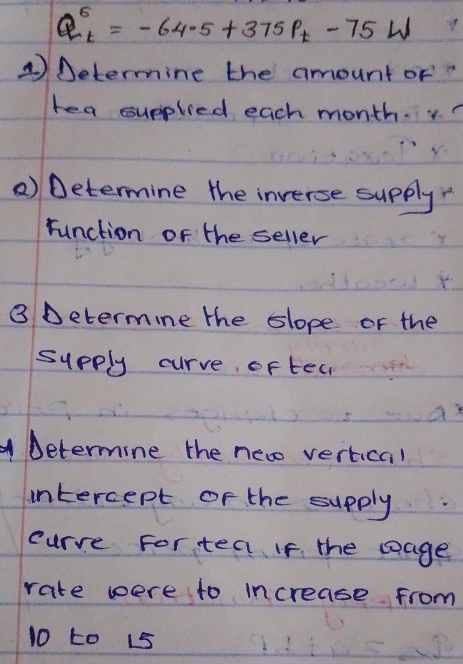 Qˢₜ = -64.5 + 375Pₜ - 75 W
1) Determine the amount of
tea supplied each month.
2) Determine the inverse supply
Function of the seller
3 Determine the slope of the
supply curve of tea
4 Determine the new vertical
intercept of the supply
curve for tea if the wage
rate were to increase from
10 to 15